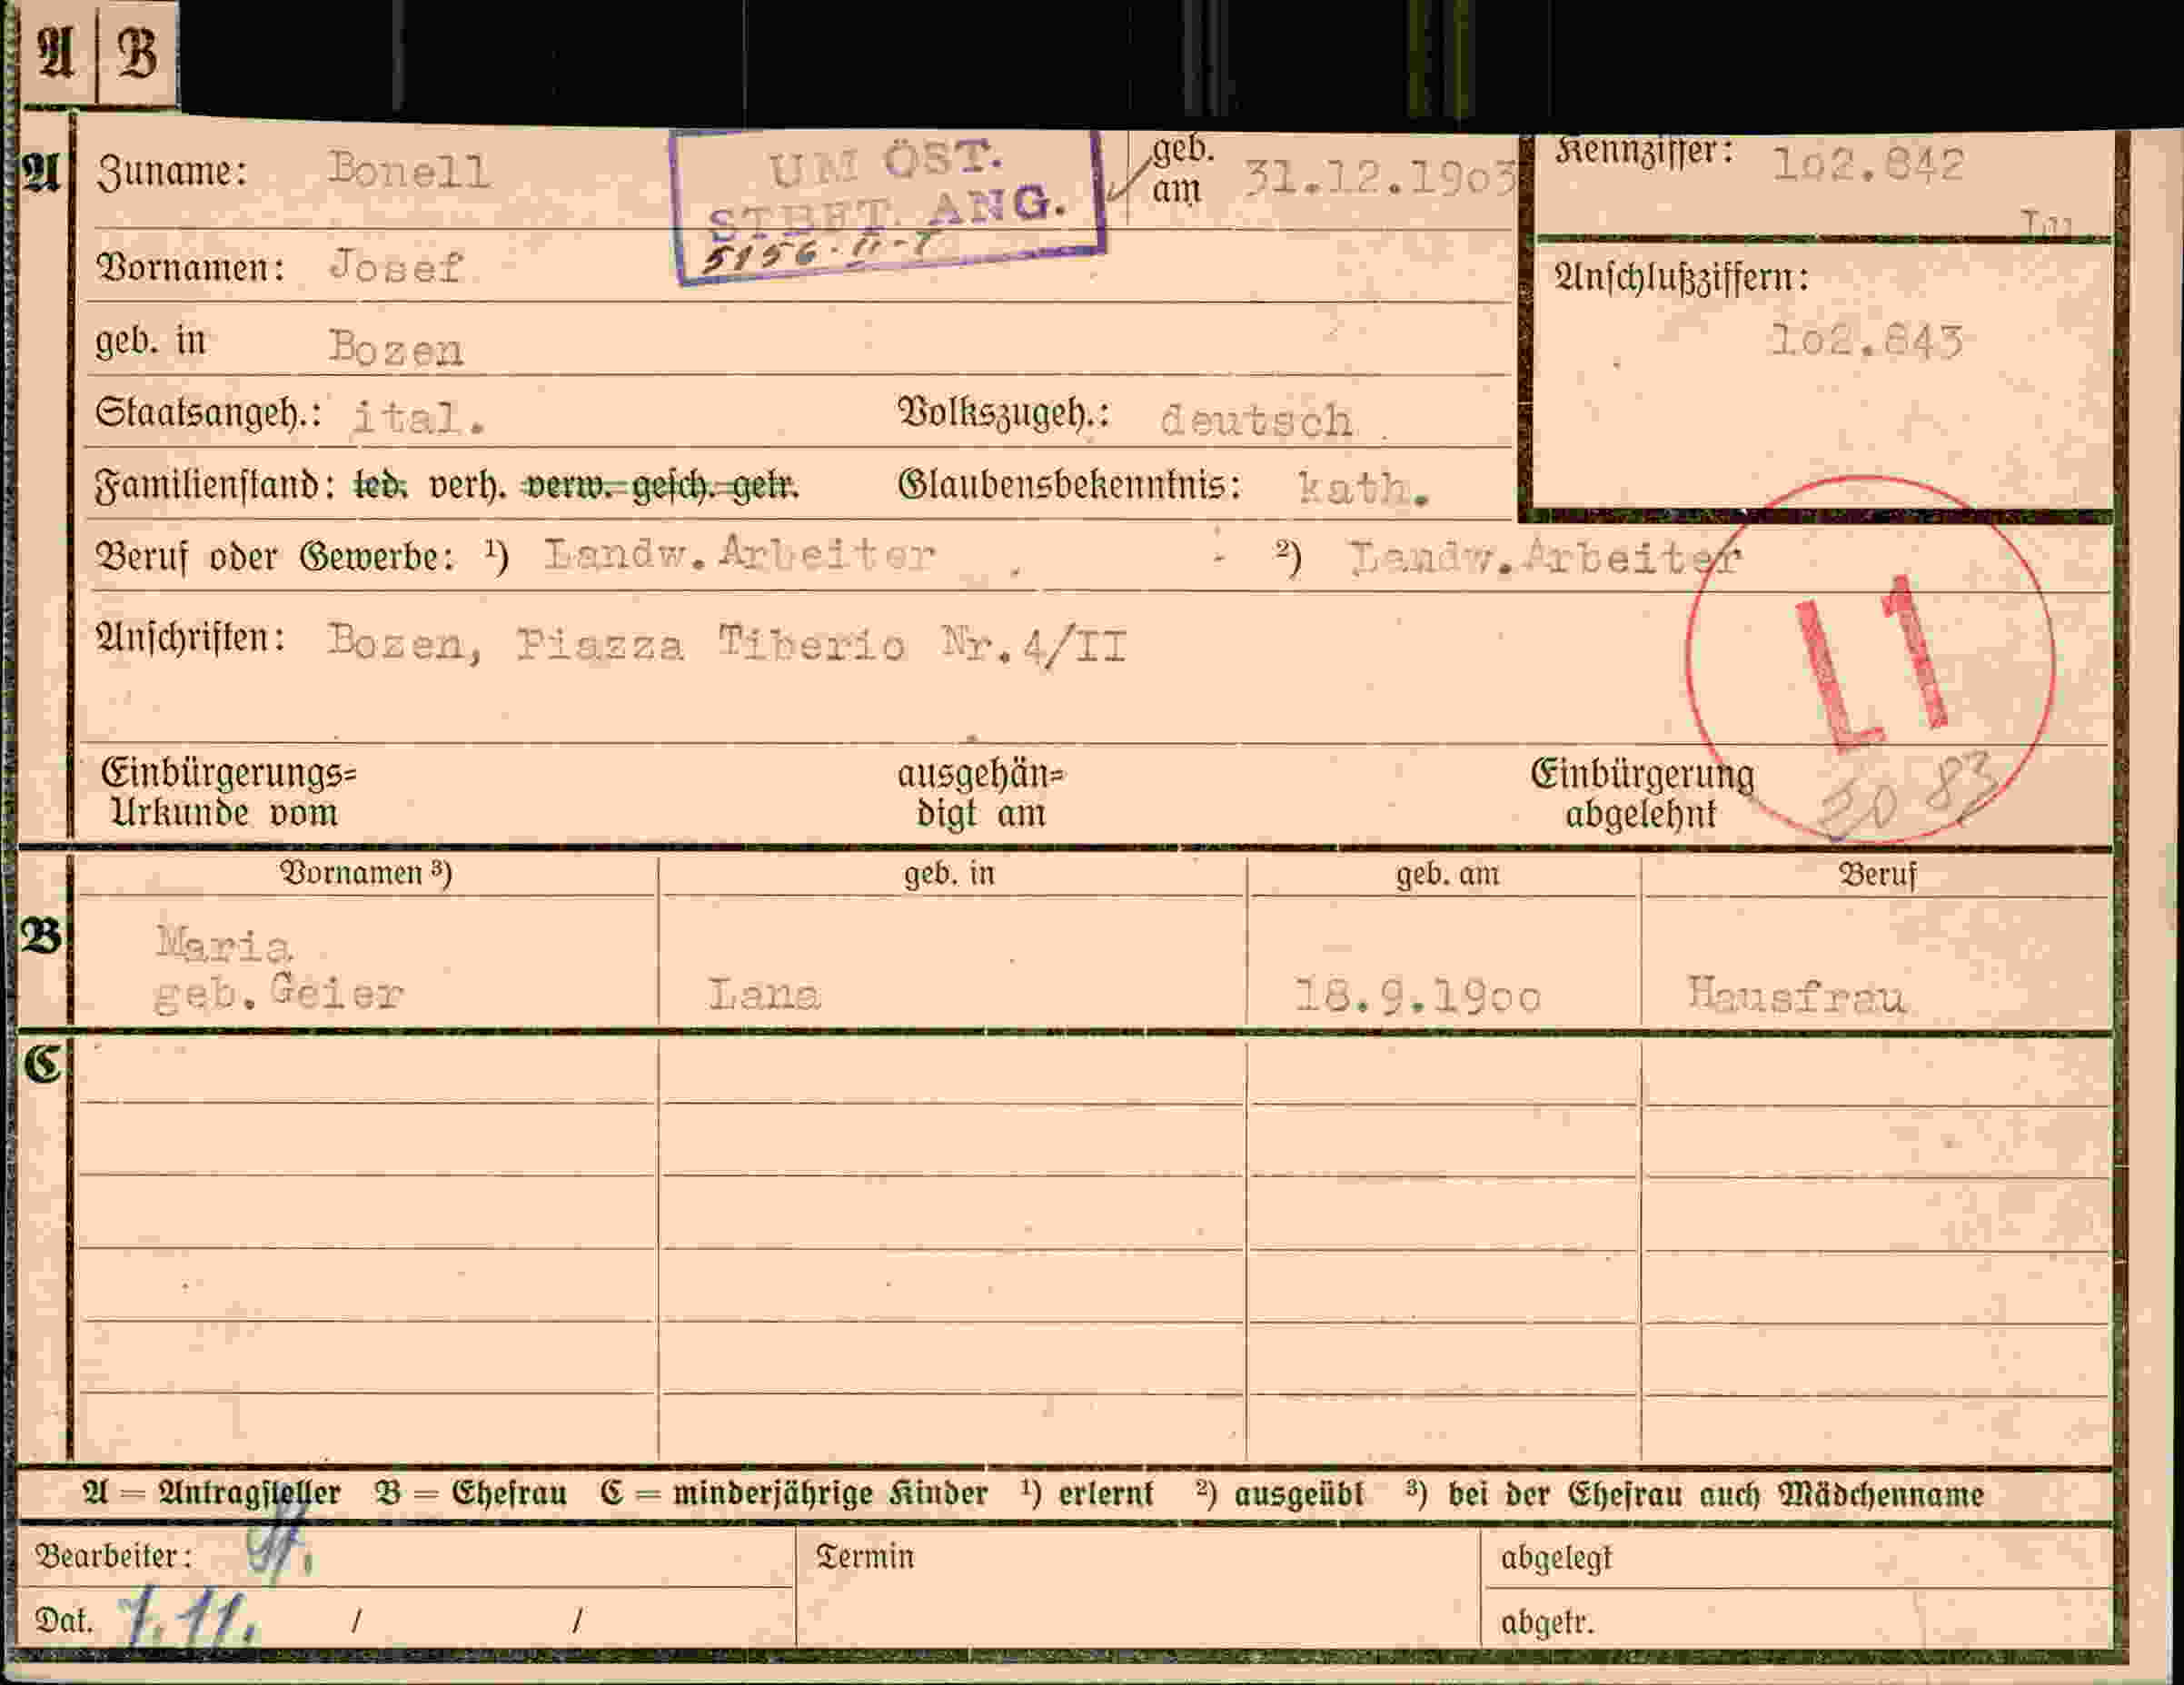 A B
A Zuname: Bonell
UM ÖST.
STBFT. ANG.
geb. am 31.12.19o3
Kennziffer: 1o2.842
Lu
Vornamen: Josef
Anschlußziffern:
1o2.843
geb. in Bozen
Staatsangeh.: ital. Volkszugeh.: deutsch
Familienstand: led. verh. verw. gesch. getr. Glaubensbekenntnis: kath.
Beruf oder Gewerbe: ¹) Landw.Arbeiter ²) Landw.Arbeiter
Anschriften: Bozen, Piazza Tiberio Nr.4/II
L1
Einbürgerungs=
Urkunde vom
ausgehän=
digt am
Einbürgerung
abgelehnt
83
Vornamen ³) geb. in geb. am Beruf
B Maria
geb.Geier Lana 18.9.19oo Hausfrau
C
A = Antragsteller B = Ehefrau C = minderjährige Kinder ¹) erlernt ²) ausgeübt ³) bei der Ehefrau auch Mädchenname
Bearbeiter: Termin abgelegt
Dat. 7.11. / / abgetr.